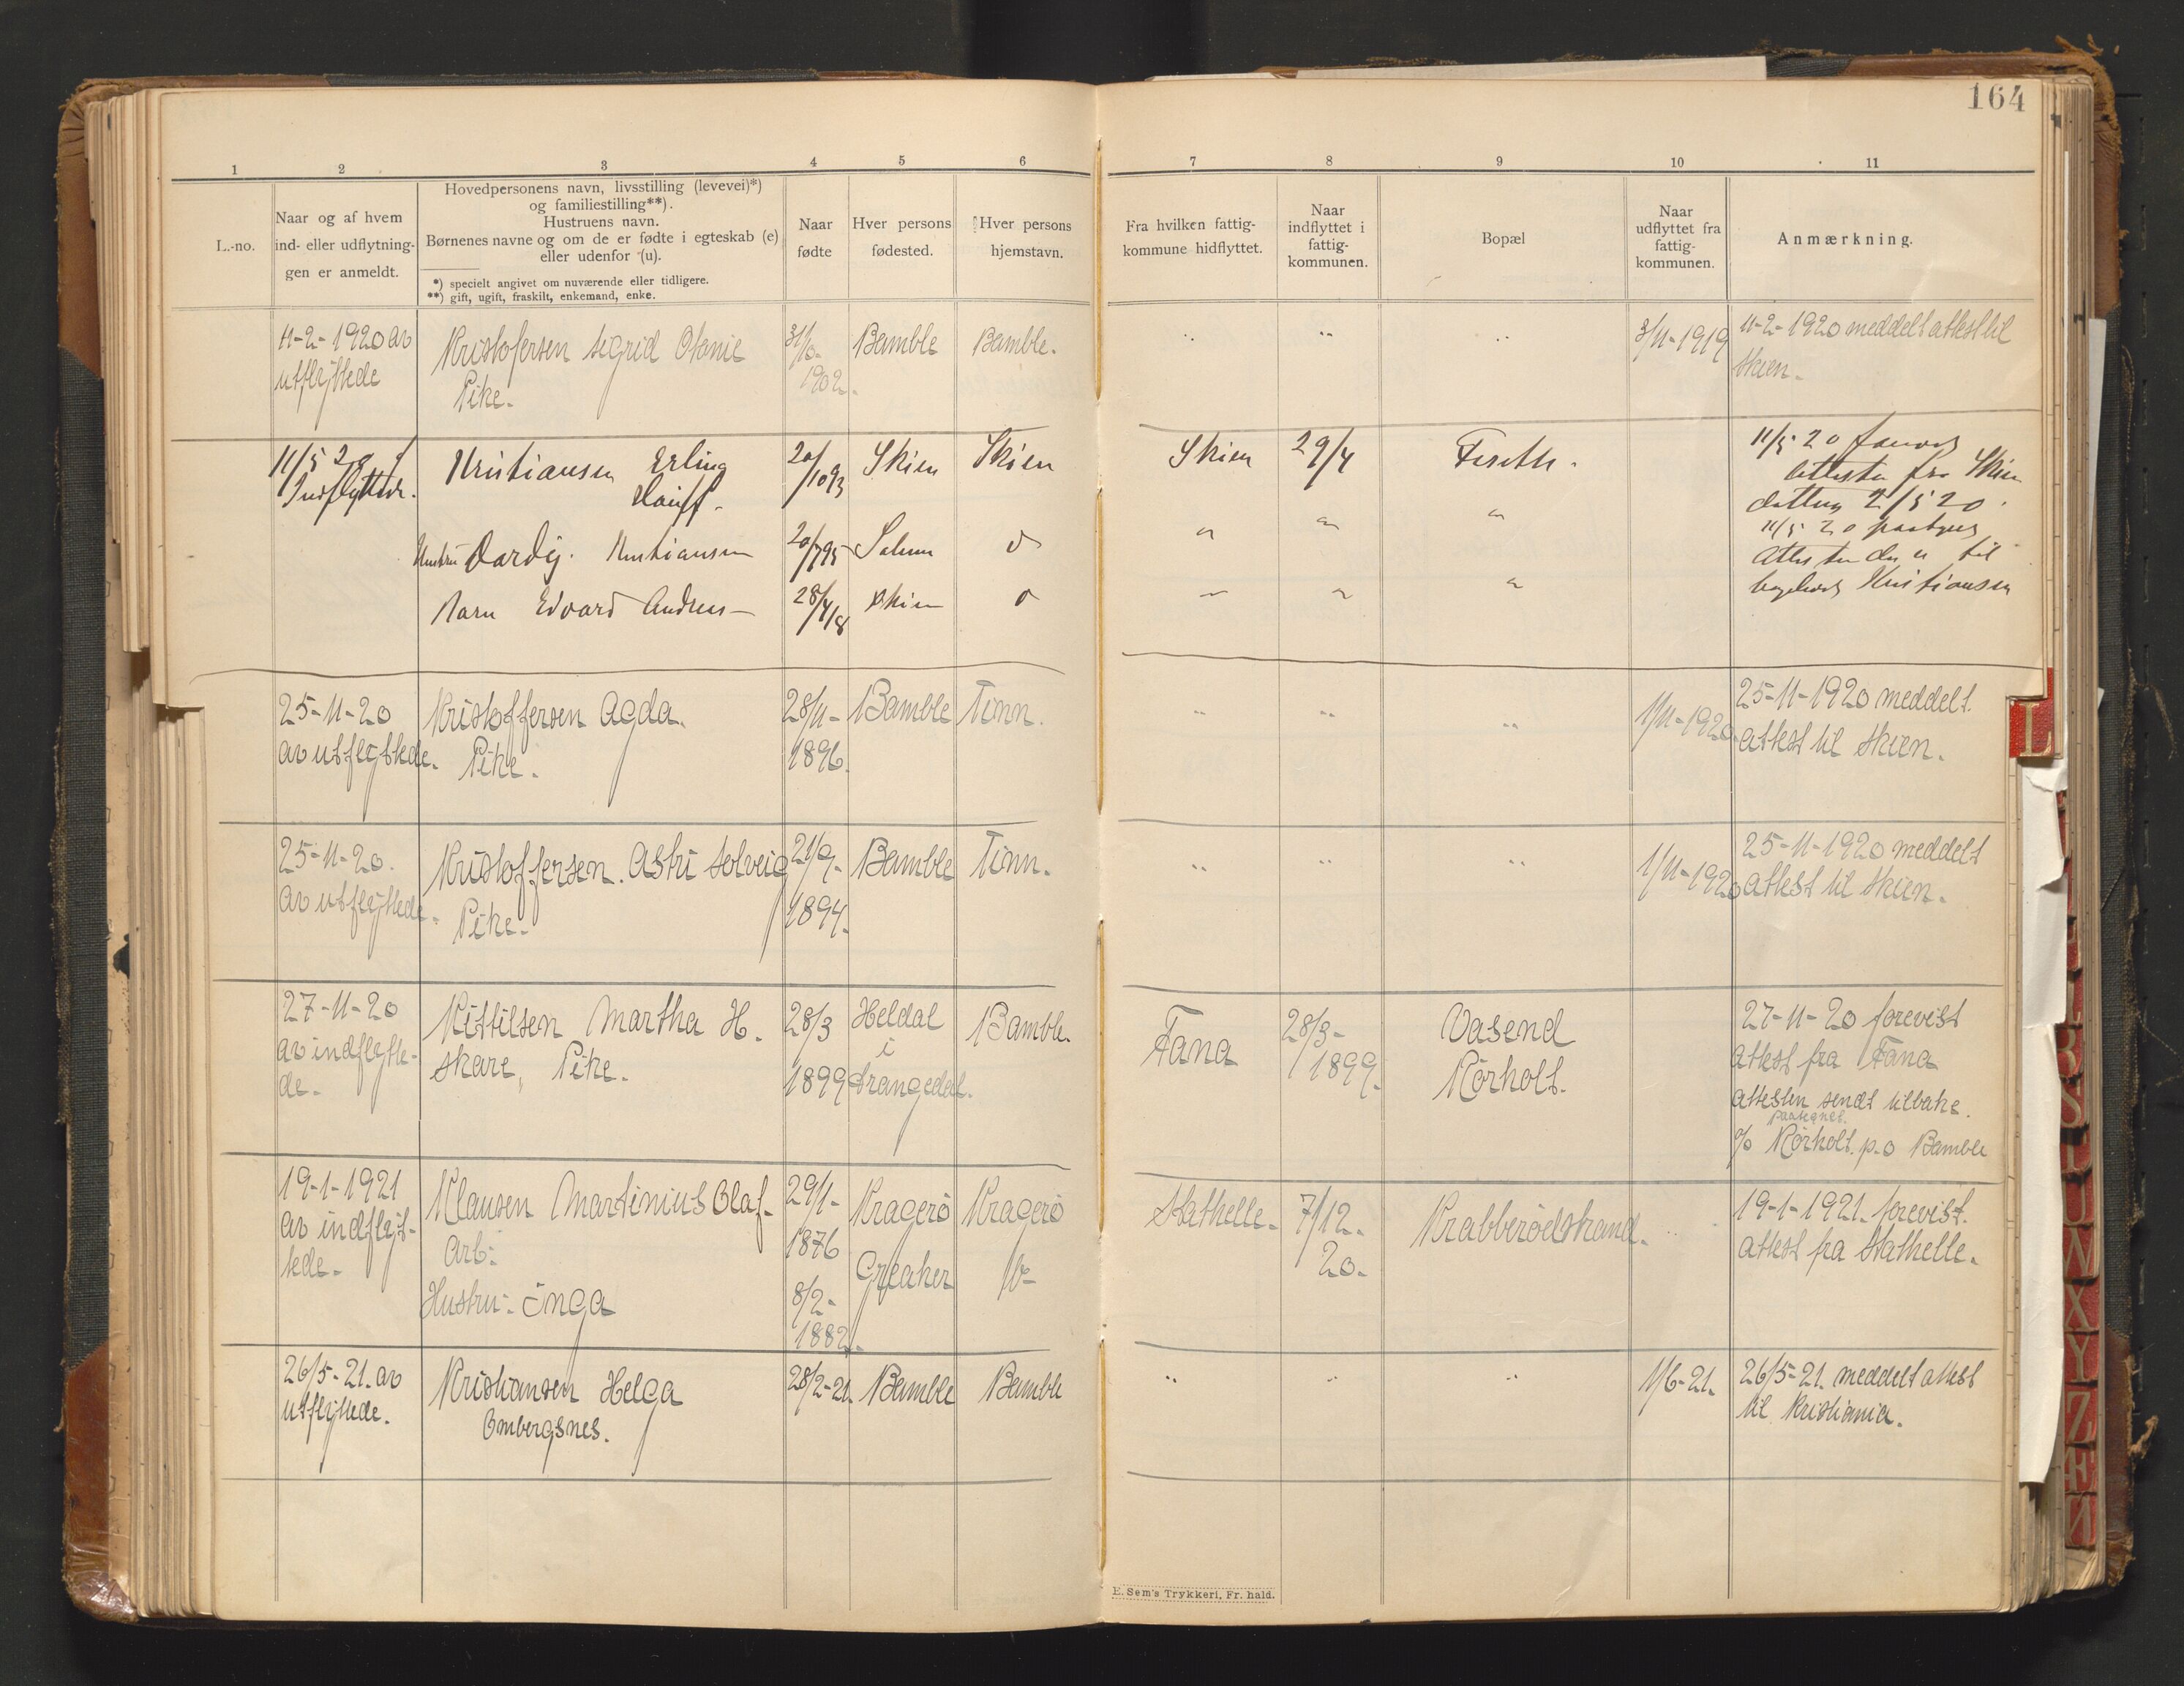 164
1 2 3 4 5 6 7 8 9 10 11
L.-no.
Naar og af hvem
ind- eller udflytnin-
gen er anmeldt.
Hovedpersonens navn, livsstilling (levevei)*)
og familiestilling**).
Hustruens navn.
Børnenes navne og om de er fødte i egteskab (e)
eller udenfor (u).
*) specielt angivet om nuværende eller tidligere.
**) gift, ugift, fraskilt, enkemand, enke.
Naar
fødte
Hver persons
fødested.
Hver persons
hjemstavn.
Fra hvilken fattig-
kommune hidflyttet.
Naar
indflyttet i
fattig-
kommunen.
Bopæl
Naar
udflyttet fra
fattig-
kommunen.
Anmærkning.
11-2-1920 av
utflyttede
Kristofersen Sigrid Otonie
Pike.
31/10-
1902.
Bamble
Bamble.
" " "
3/11-1919
11-2-1920 meddelt attest til
Skien.
11/5 20 f
Indflyttede.
Kristiansen Erling
20/10 93
Skien
Skien
Skien
29/4
11/5 20
attesten fra Skien
2/5 20.
Hustru Kristiansen
20/7 95
Solum
" " "
11/5 20
attesten til
Kristiansen
Barn Edvard Andreas
28/4 18
Skien
" " "
25-11-20
av utflyttede.
Kristoffersen Agda.
Pike.
28/11-
1896.
Bamble
Tinn.
" " "
1/11-1920.
25-11-1920 meddelt
attest til Skien.
25-11-20.
av utflyttede.
Kristoffersen. Astri Solveig
Pike.
21/9-
1894.
Bamble
Tinn.
" " "
1/11-1920
25-11-1920 meddelt
attest til Skien.
27-11-20
av indflytte-
de.
Kittilsen Martha H.
Skare, Pike.
28/3
1899
Heldal
i
Drangedal.
Bamble.
Fana
28/3-
1899.
Vasend
Rörholt.
27-11-20 forevist
attest fra Fana
attesten sendt tilbake.
paategnet.
c/o Rörholt. p.o Bamble
19-1-1921
av indflyt-
tede.
Klausen Martinius Olaf.
Arb:
Hustru: Inga
29/1-
1876
8/2-
1882.
Kragerö
Greaker
Kragerö
Stathelle.
7/12.
20.
Krabberödstrand.
19-1-1921. forevist.
attest fra Stathelle.
26/5-21. av
utflyttede.
Kristiansen Helga
Ombergsnes.
28/2-21.
Bamble
Bamble
" " "
1/6-21.
26/5-21. meddelt attest
til Kristiania.
E. Sem's Trykkeri, Fr. hald.
L
R
S
T
U
W
X
Y
Z
Æ